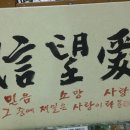 信望愛
믿음 소망 사랑
그 중에 제일은 사랑이라